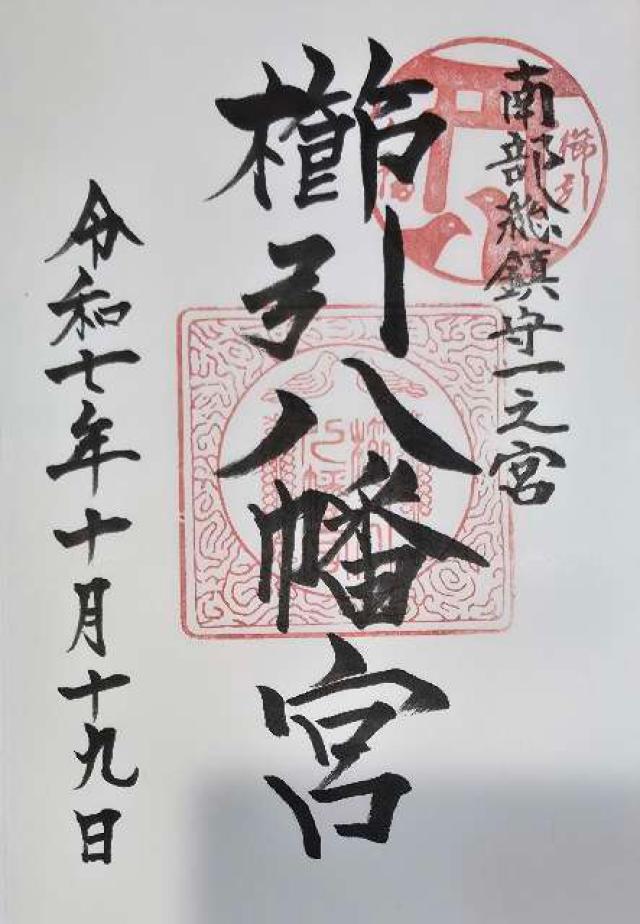 南部総鎮守一之宮
櫛引八幡宮
令和七年十月十九日
櫛引